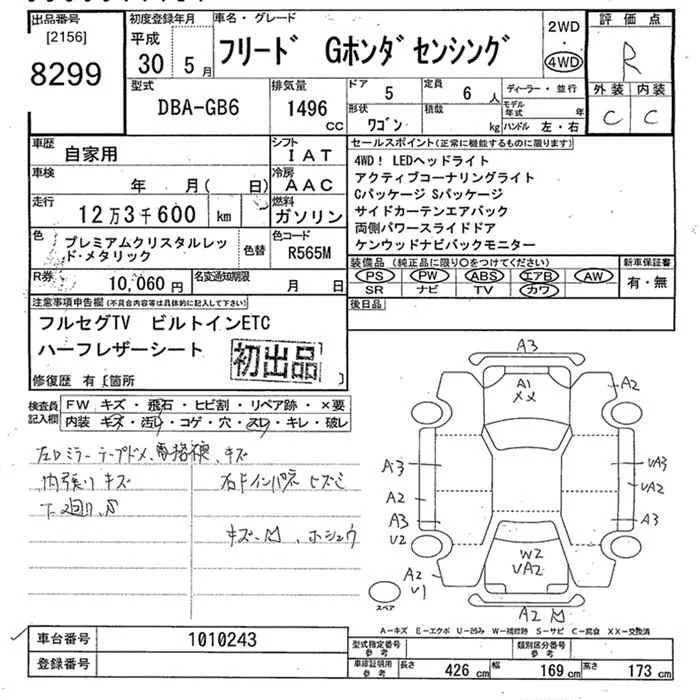 出品番号
[2156]
8299
初度登録年月
平成
30 5月
車名・グレード
フリード Gホンダセンシング
2WD
・
4WD
評価点
R
外装 内装
C C
型式
DBA-GB6
排気量
1496
CC
ドア
5
定員
6 人
形状
ワゴン
積載
kg
ディーラー・並行
モデル年式 年
ハンドル 左・右
車歴
自家用
シフト
I A T
車検
年 月( 日)
冷房
A A C
走行
12万3千600 km
燃料
ガソリン
色
プレミアムクリスタルレッド・メタリック
色替
色コード
R565M
R券
10,060円
名変通知期限
月 日
セールスポイント(正常に機能するものに限ります)
4WD! LEDヘッドライト
アクティブコーナリングライト
Cパッケージ Sパッケージ
サイドカーテンエアバック
両側パワースライドドア
ケンウッドナビバックモニター
装備品 (純正品に限り○をつけてください)
PS PW ABS エアB AW
SR ナビ TV カワ
新車保証書
有・無
後日品
注意事項申告欄(不具合内容等は具体的に記入して下さい)
フルセグTV ビルトインETC
ハーフレザーシート
初出品
修復歴 有〔箇所
検査員記入欄
FW キズ・飛石・ヒビ割・リペア跡・×要
内装 キズ・汚レ・コゲ・穴・スレ・キレ・破レ
左ロミラーテープドメ、キズ
内張りキズ
下廻り、S
右Fインパネヒズミ
キズ、ホシュウ
A3
A1
XX
A2
A3
A2
A3
U2
UA3
UA2
A3
W2
UA2
A2
U1
A2
スペア
A-キズ E-エクボ U-凹み W-補修跡 S-サビ C-腐食 XX-交換済
車台番号
1010243
登録番号
型式指定番号
参考
類別区分番号
参考
車庫証明用
参考
長さ 426 cm 幅 169 cm 高さ 173 cm